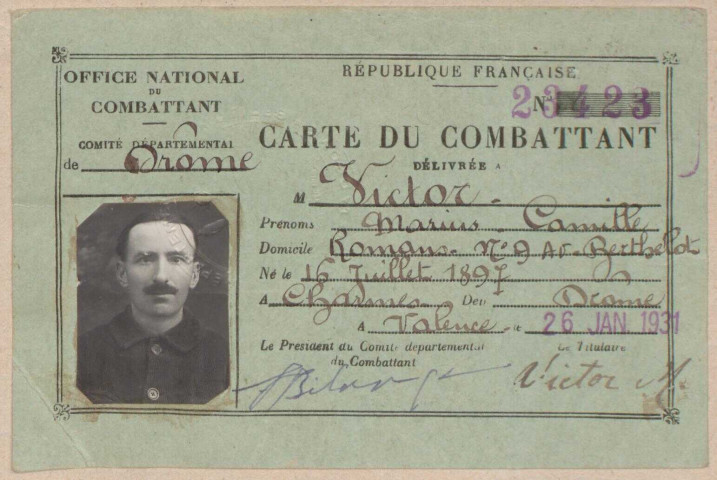 OFFICE NATIONAL
DU
COMBATTANT
COMITÉ DÉPARTEMENTAL
de Drôme
RÉPUBLIQUE FRANÇAISE
N° 23423
CARTE DU COMBATTANT
DÉLIVRÉE A
M Victor.
Prénoms Marius. Camille
Domicile Romans. N° 9 Av. Berthelot
Né le 16 Juillet 1897
A Charmes. Dep Drôme
A Valence, le 26 JAN. 1931
Le Président du Comité départemental
du Combattant
Le Titulaire
Victor M.